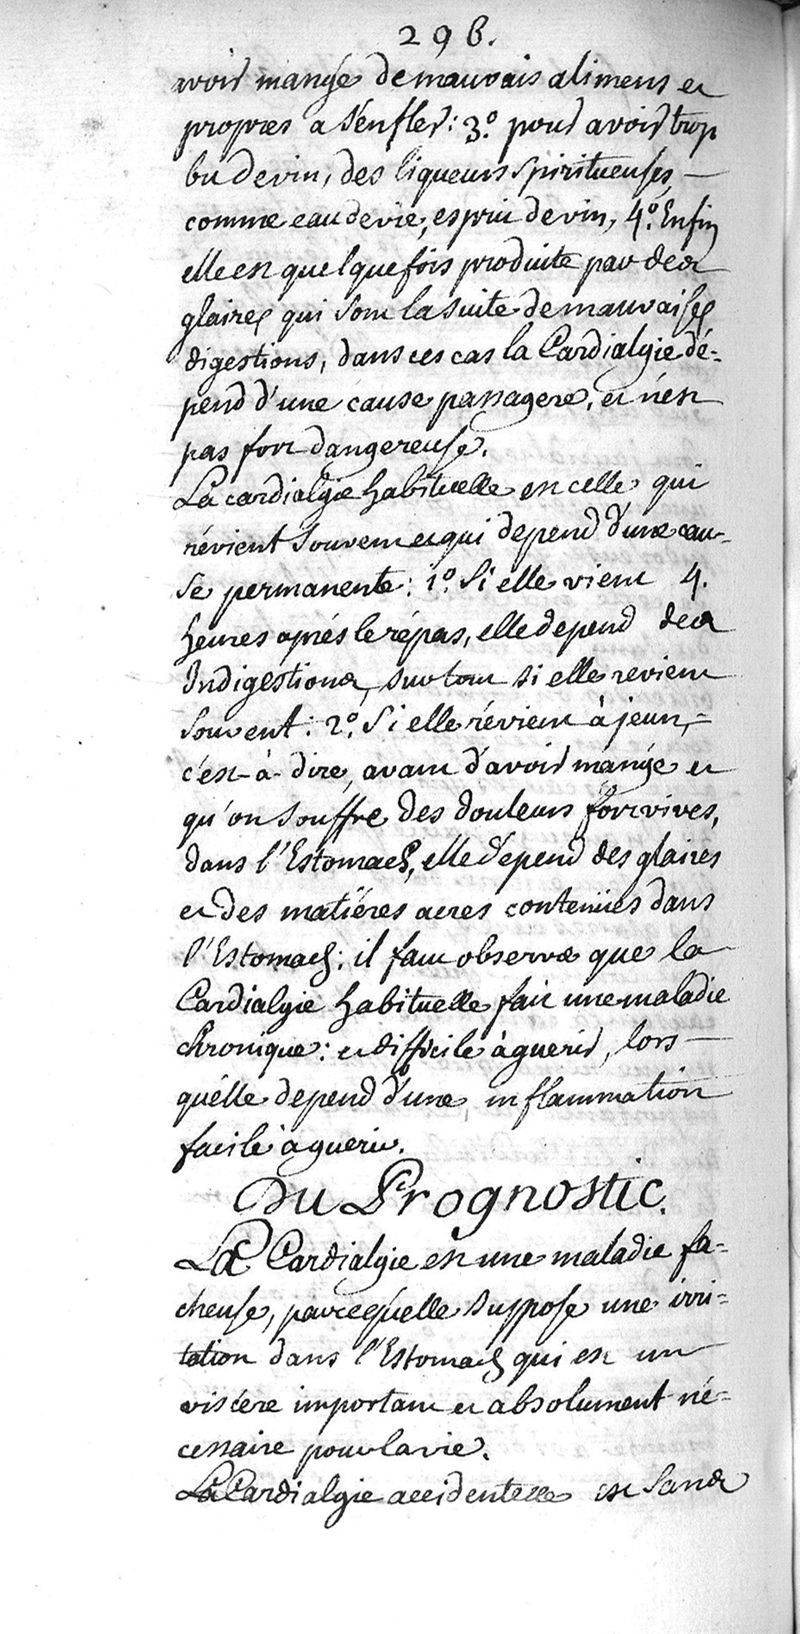 296.
avoir mangé de mauvais alimens et
propres a s'enfler: 3.º pour avoir trop
bu de vin, des liqueurs spiritueuses,
comme eau de vie, esprit de vin, 4.º Enfin
elle est quelquefois produite par des
glaires qui sont la suite de mauvaises
digestions, dans ces cas la Cardialgie dé-
pend d'une cause passagere, et n'est
pas fort dangereuse.
La cardialgie habituelle est celle qui
révient souvent et qui depend d'une cau-
se permanente: 1.º Si elle vient 4.
heures aprés le répas, elle depend des
Indigestions, surtout si elle revient
souvent: 2.º Si elle révient à jeun,
c'est-à-dire, avant d'avoir mangé et
qu'on souffre des douleurs fort vives,
dans l'Estomach, elle dépend des glaires
et des matiéres acres contenües dans
l'Estomach: il faut observer que la
Cardialgie habituelle fait une maladie
chronique: et difficile à guerir, lors-
qu'élle depend d'une inflammation
facile à guerir.
Du Prognostic.
La Cardialgie est une maladie fa-
cheuse, parcequ'elle suppose une irri-
tation dans l'Estomach qui est un
viscére important et absolument né-
cessaire pour la vie.
La Cardialgie accidentelle est sans